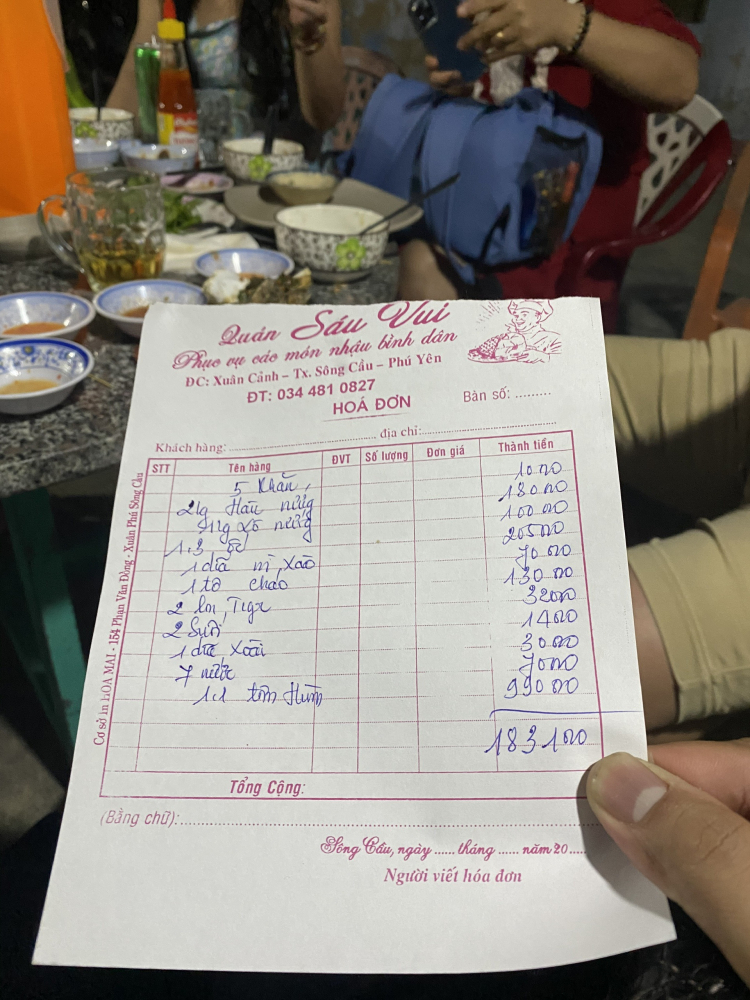 Quán Sáu Vui
Phục vụ các món nhậu bình dân
ĐC: Xuân Cảnh – Tx. Sông Cầu – Phú Yên
ĐT: 034 481 0827
HOÁ ĐƠN
Bàn số: .........
Khách hàng: ............ địa chỉ: ............
STT Tên hàng ĐVT Số lượng Đơn giá Thành tiền
5 Khăn, 1000
Hàu nướng 18000
nướng 10000
1.3 20500
1 dĩa mì xào 7000
1 tô cháo 13000
2 lon Tiger 3200
2 Suối 1400
1 dĩa Xoài 3000
7 nước 7000
1.1 tôm Hùm 99000
183100
Tổng Cộng:
(Bằng chữ): ............
Sông Cầu, ngày ...... tháng ...... năm 20......
Người viết hóa đơn
Cơ sở in HOA MAI - 154 Phạm Văn Đồng - Xuân Phú Sông Cầu